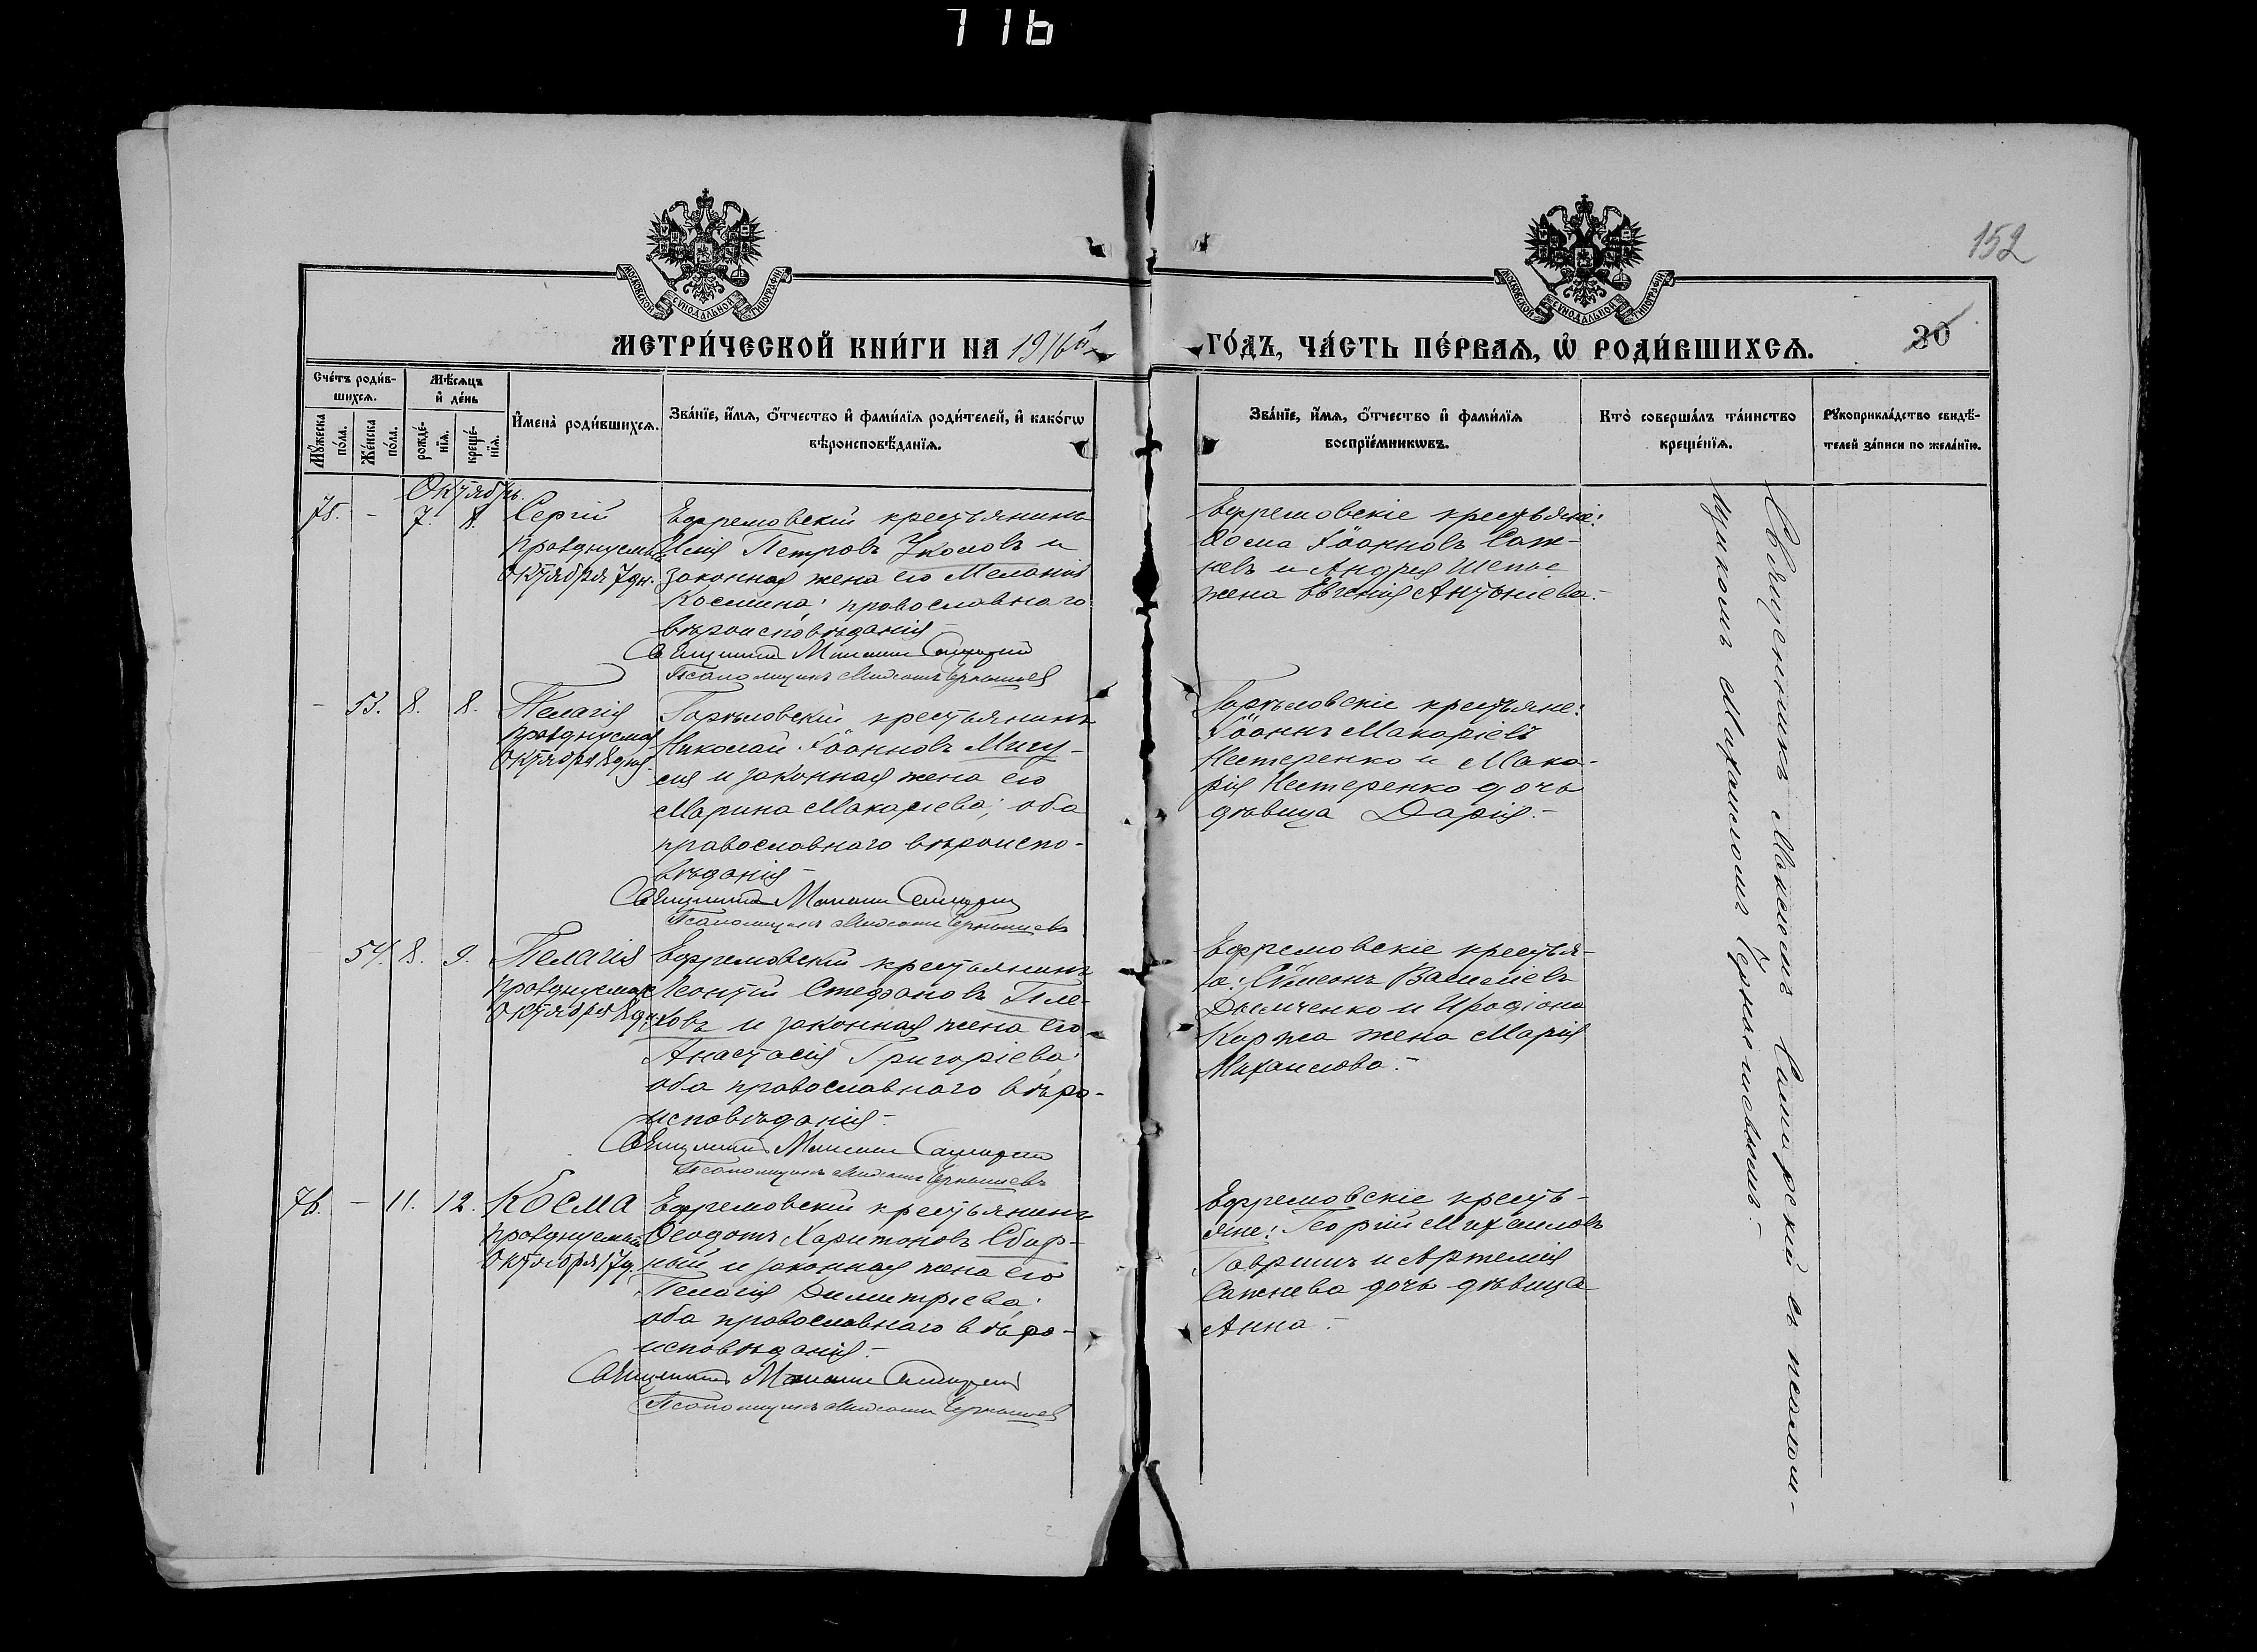 716
152
МОСКОВСКОЙ СѴНОДАЛЬНОЙ ТИПОГРАФІИ
МОСКОВСКОЙ СѴНОДАЛЬНОЙ ТИПОГРАФІИ
МЕТРИ́ЧЕСКОЙ КНИ́ГИ НА 1916й
ГО́ДЪ, ЧА́СТЬ ПЕ́РВАѦ, Ѡ҆ РОДИ́ВШИХСѦ.
30
Сче́тъ роди́в-
шихсѧ.
Мꙋ́жеска по́ла.
Же́нска по́ла.
Мѣ́сѧцъ
и҆ де́нь
рожде́-
нїѧ.
креще́-
нїѧ.
И҆мена̀ роди́вшихсѧ.
Зва́нїе, и҆́мѧ, ѻ҆́тчество и҆ фами́лїѧ роди́телей, и҆ како́гѡ
вѣроисповѣ́данїѧ.
Зва́нїе, и҆́мѧ, ѻ҆́тчество и҆ фами́лїѧ
воспрїе́мникѡвъ.
Кто̀ соверша́лъ та́инство
креще́нїѧ.
Рꙋкоприкла́дство свидѣ́-
телей за́писи по жела́нїю.
Октябрь.
75. - 7. 8. Сергій
празднуемый
Октября 7 дн.
Ефремовскій крестьянинъ
Петровъ Укосовъ и
законная жена его Меланія
Космина; православнаго
вѣроисповѣданія-
Священникъ Максимъ Сапирскій
Псаломщикъ Михаилъ Чернышевъ
Ефремовскіе крестьяне:
Косма Іоанновъ Саж-
невъ и Андрея Шепы
жена Евгенія Антоніева.-
- 53. 8. 8. Пелагія
празднуемая
Октября 8 дня
Горѣловскій крестьянинъ
Николай Іоанновъ Мигу-
ля и законная жена его
Марина Макаріева; оба
православнаго вѣроиспо-
вѣданія-
Священникъ Максимъ Сапирскій
Псаломщикъ Михаилъ Чернышевъ
Горѣловскіе крестьяне:
Іоаннъ Макаріевъ
Нестеренко и Мака-
рія Нестеренко дочь
дѣвица Дарія.-
54. 8. 9. Пелагія
празднуемая
Октября 8 дн.
Ефремовскій крестьянинъ
Леонтій Стефановъ Пле-
ховъ и законная жена его
Анастасія Григоріева;
оба православнаго вѣро-
исповѣданія-
Священникъ Максимъ Сапирскій
Псаломщикъ Михаилъ Чернышевъ
Ефремовскіе крестья-
Симеонъ Василіевъ
Дымченко и Иродіона
Коржа жена Марія
Михаилова.-
76. - 11. 12. Косма
празднуемый
Октября 17 д.
Ефремовскій крестьянинъ
Ѳеодотъ Харитоновъ Сбир-
ный и законная жена его
Пелагія Димитріева;
оба православнаго вѣро-
исповѣданія.-
Священникъ Максимъ Сапирскій
Псаломщикъ Михаилъ Чернышевъ
Ефремовскіе кресть-
яне: Георгій Михаиловъ
Гавришъ и Артемія
Сажнева дочь дѣвица
Анна.-
Священникъ Максимъ Сапирскій съ псалом-
щикомъ Михаиломъ Чернышевымъ.-